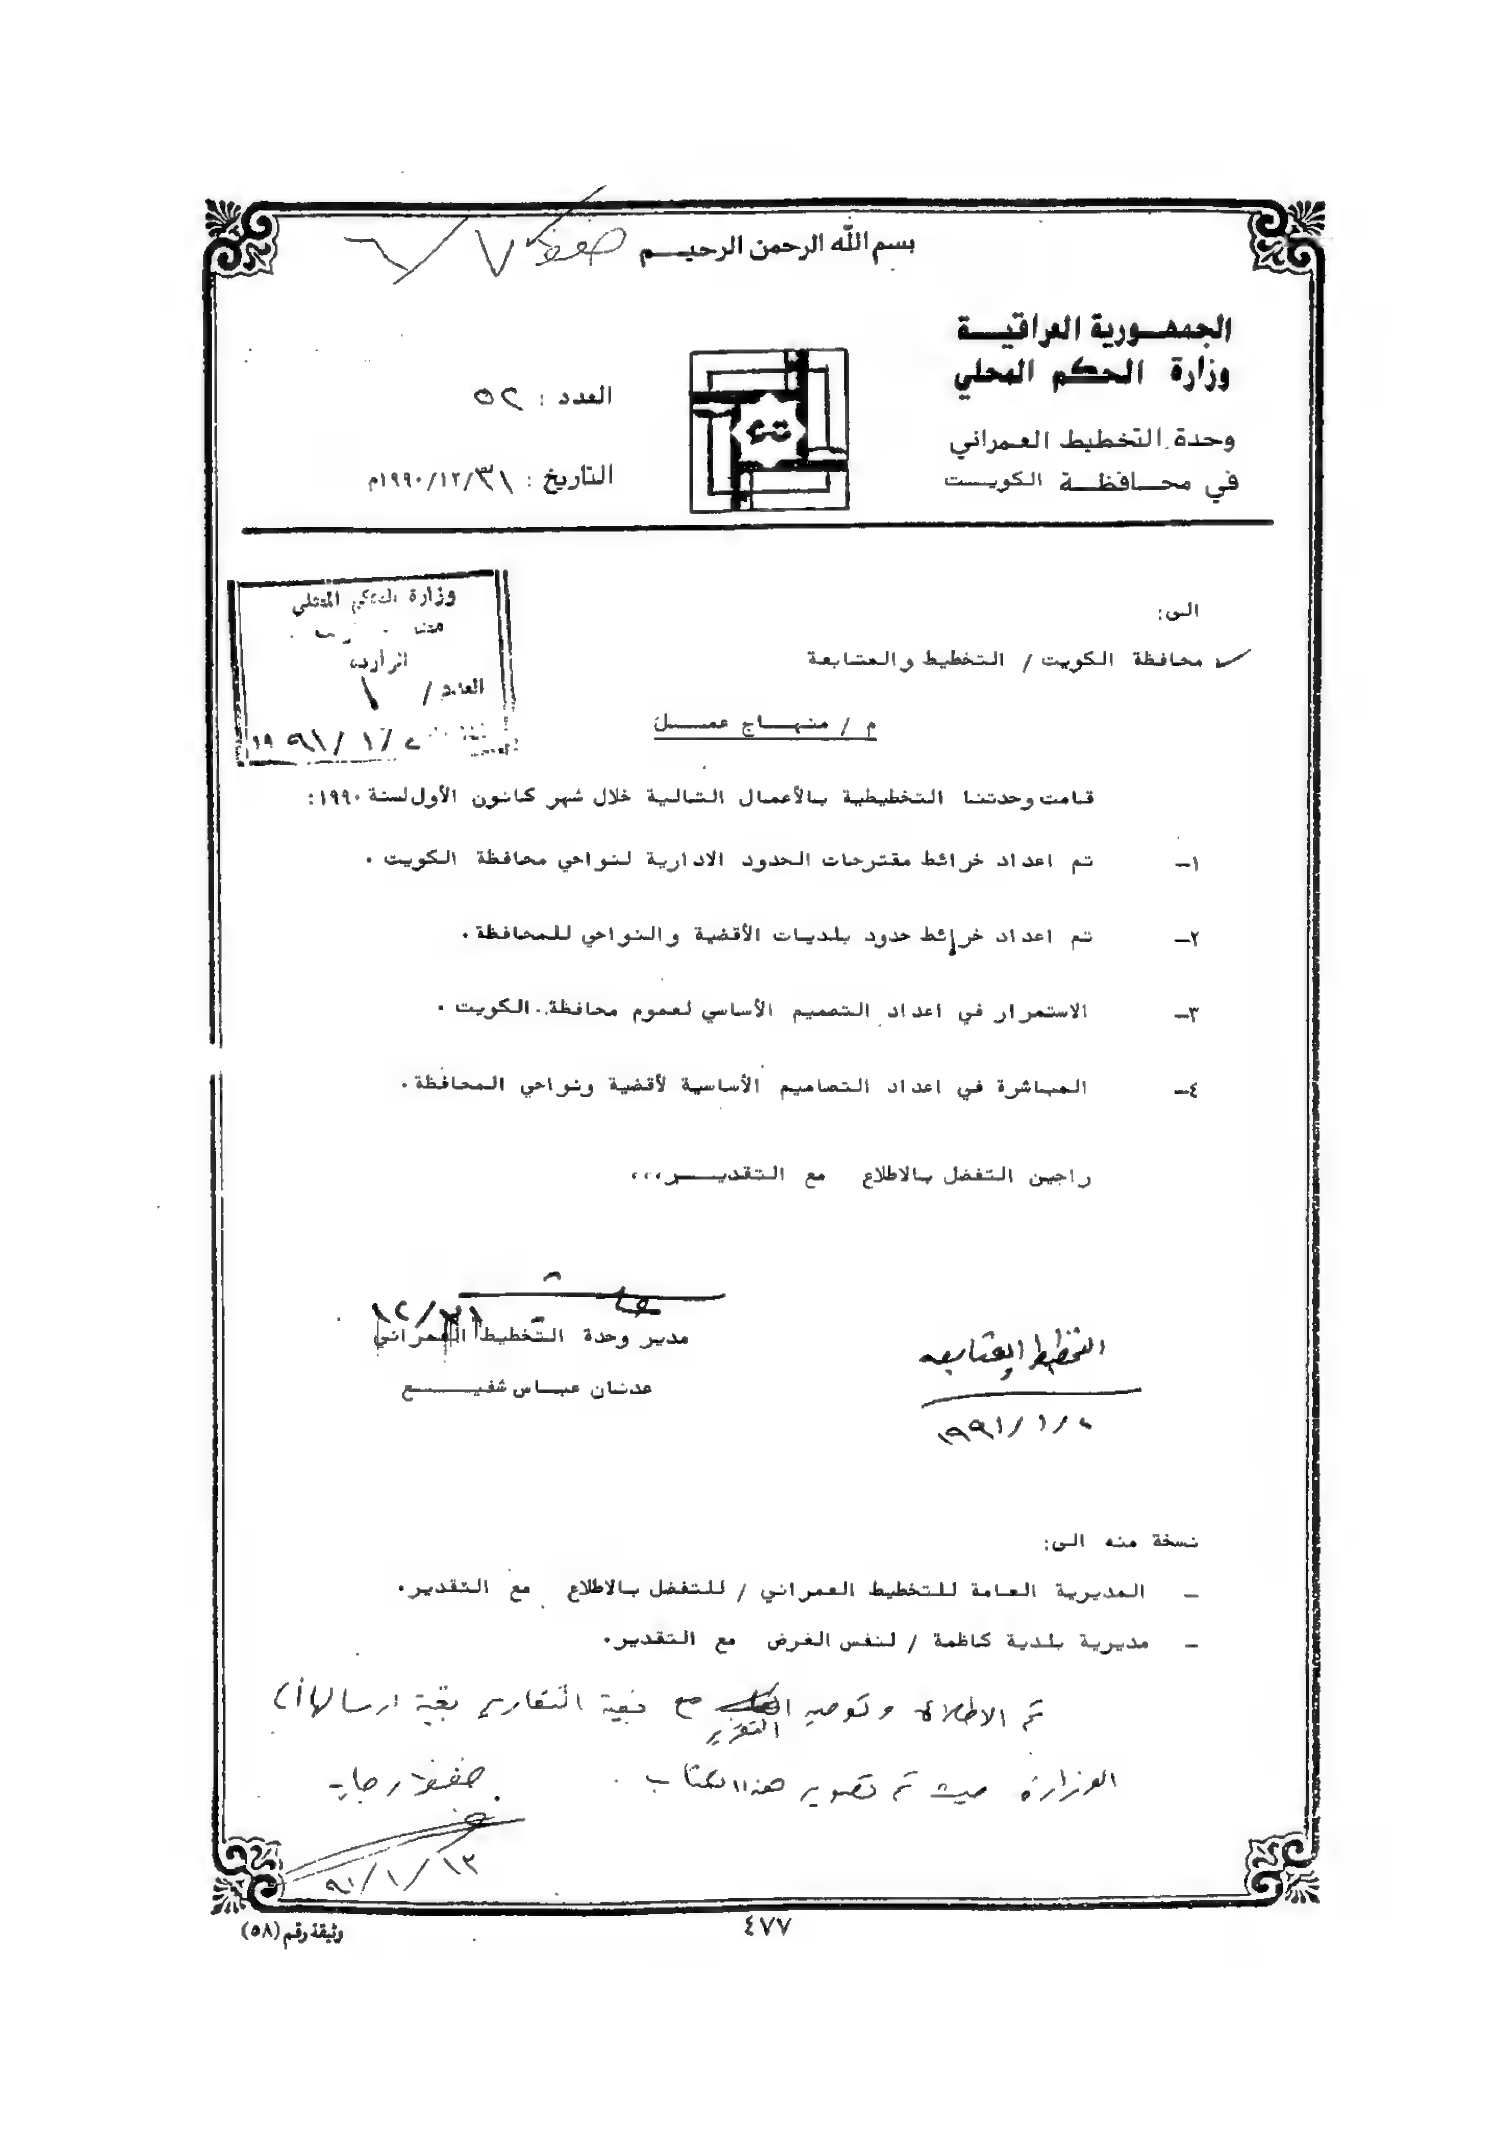 بسم الله الرحمن الرحيم
الجمهورية العراقية
وزارة الحكم المحلي
وحدة التخطيط العمراني
في محافظة الكويت
العدد : ٥٢
التاريخ : ٣١/١٢/١٩٩٠م
وزارة الحكم المحلي
الواردة
العدد / ١
الى:
محافظة الكويت / التخطيط والمتابعة
م / منهاج عمل
قامت وحدتنا التخطيطية بالأعمال التالية خلال شهر كانون الأول لسنة ١٩٩٠:
١- تم اعداد خرائط مقترحات الحدود الادارية لنواحي محافظة الكويت .
٢- تم اعداد خرائط حدود بلديات الأقضية والنواحي للمحافظة .
٣- الاستمرار في اعداد التصميم الأساسي لعموم محافظة الكويت .
٤- المباشرة في اعداد التصاميم الأساسية لأقضية ونواحي المحافظة .
راجين التفضل بالاطلاع مع التقدير،،،
٣١/١٢
مدير وحدة التخطيط العمراني
عدنان عباس شفيع
التخطيط والمتابعة
١٩٩١/١/
نسخة منه الى:
- المديرية العامة للتخطيط العمراني / للتفضل بالاطلاع مع التقدير.
- مديرية بلدية كاظمة / لنفس الغرض مع التقدير.
تم الاطلاع وتوحيد التقرير مع بقية التقارير بغية ارسالها الى
الوزارة حيث تم تصوير هذا الكتاب . حفظ رجاء
٩١/١/١٣
٤٧٧
وثيقة رقم (٥٨)